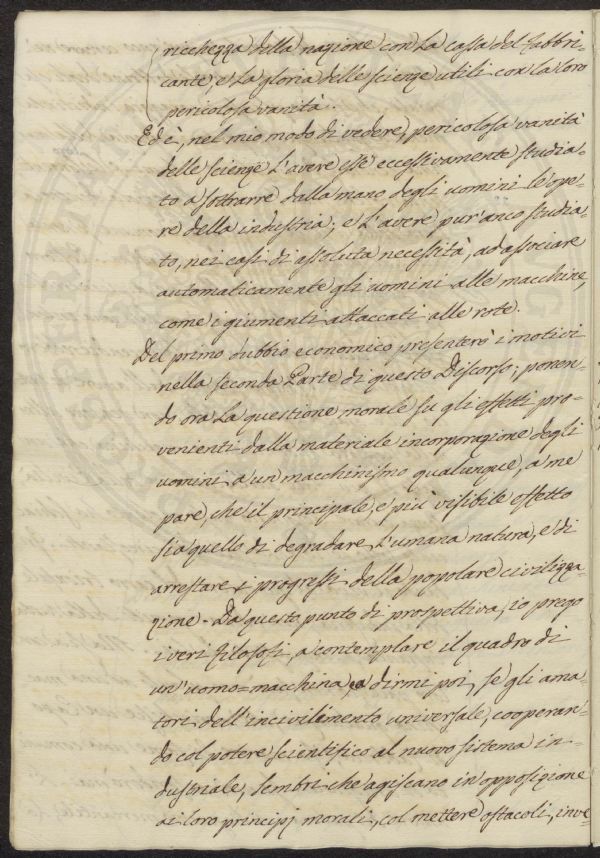 ricchezza della nazione con la cassa del Fabbri-
cante, e la gloria delle scienze utili con la loro
pericolosa vanità.
Ed è, nel mio modo di vedere, pericolosa vanità
delle scienze l'avere esse eccessivamente studia-
to a sottrarre dalla mano degli uomini le ope-
re della industria; e l'avere pur'anco studia-
to, nei casi di assoluta necessità, ad associare
automaticamente gli uomini alle macchine,
come i giumenti attaccati alle rote.
Del primo dubbio economico presenterò i motivi
nella seconda Parte di questo Discorso; ponen-
do ora la questione morale su gli effetti pro-
venienti dalla materiale incorporazione degli
uomini a un macchinismo qualunque, a me
pare, che il principale, e più visibile effetto
sia quello di degradare l'umana natura, e di
arrestare i progressi della popolare civilizza-
zione. Da questo punto di prospettiva, io prego
i veri Filosofi, a contemplare il quadro di
un'uomo=macchina, e a dirmi poi, se gli ama-
tori dell'incivilimento universale, cooperan-
do col potere scientifico al nuovo sistema in-
dustriale, sembri che agiscano in opposizione
ai loro principj morali, col mettere ostacoli, inve-